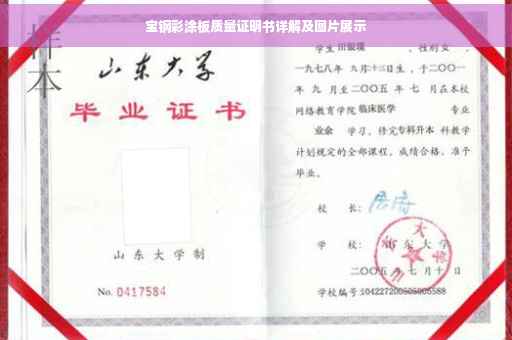 宝钢彩涂板质量证明书详解及图片展示
样本
山东大学
毕业证书
山东大学制
No. 0417584
学生 田银瑞 ,性别女 ,
一九七八年 九月十三日生,于二〇〇一
年 九 月至二〇〇五 年 七 月在本校
网络教育学院 临床医学 专业
业余 学习,修完专科升本 科教学
计划规定的全部课程,成绩合格,准予
毕业。
校 长:
学 校: 山东大学
二〇〇五 年 七 月 十 日
学校编号:104227200505005588